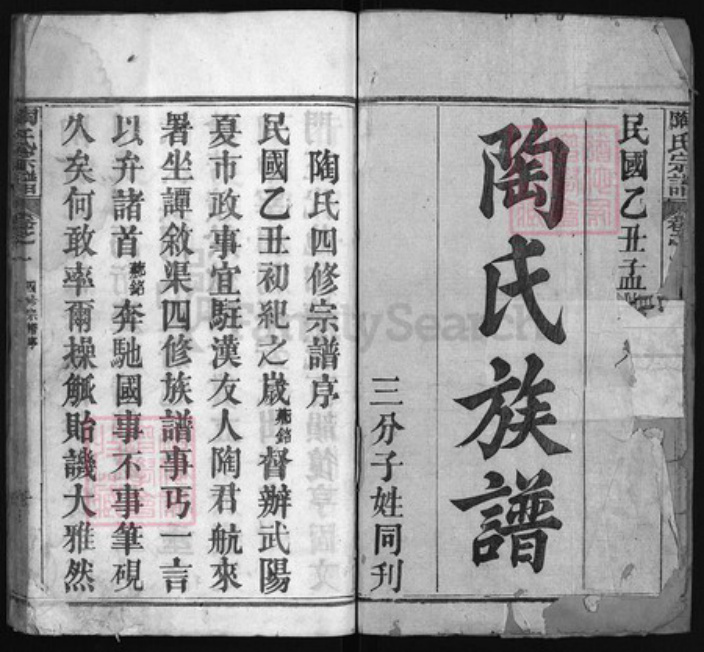 陶氏宗譜
民國乙丑孟
陶氏族譜
三分子姓同刋
陶氏四修宗譜序
民國乙丑初紀之歲蘒銘督辦武陽
夏市政事宜駐漢友人陶君航來
署坐譚敘渠四修族譜事丐一言
以弁諸首蘒銘奔馳國事不事筆硯
久矣何敢率爾操觚貽譏大雅然
卷之一
FamilySearch